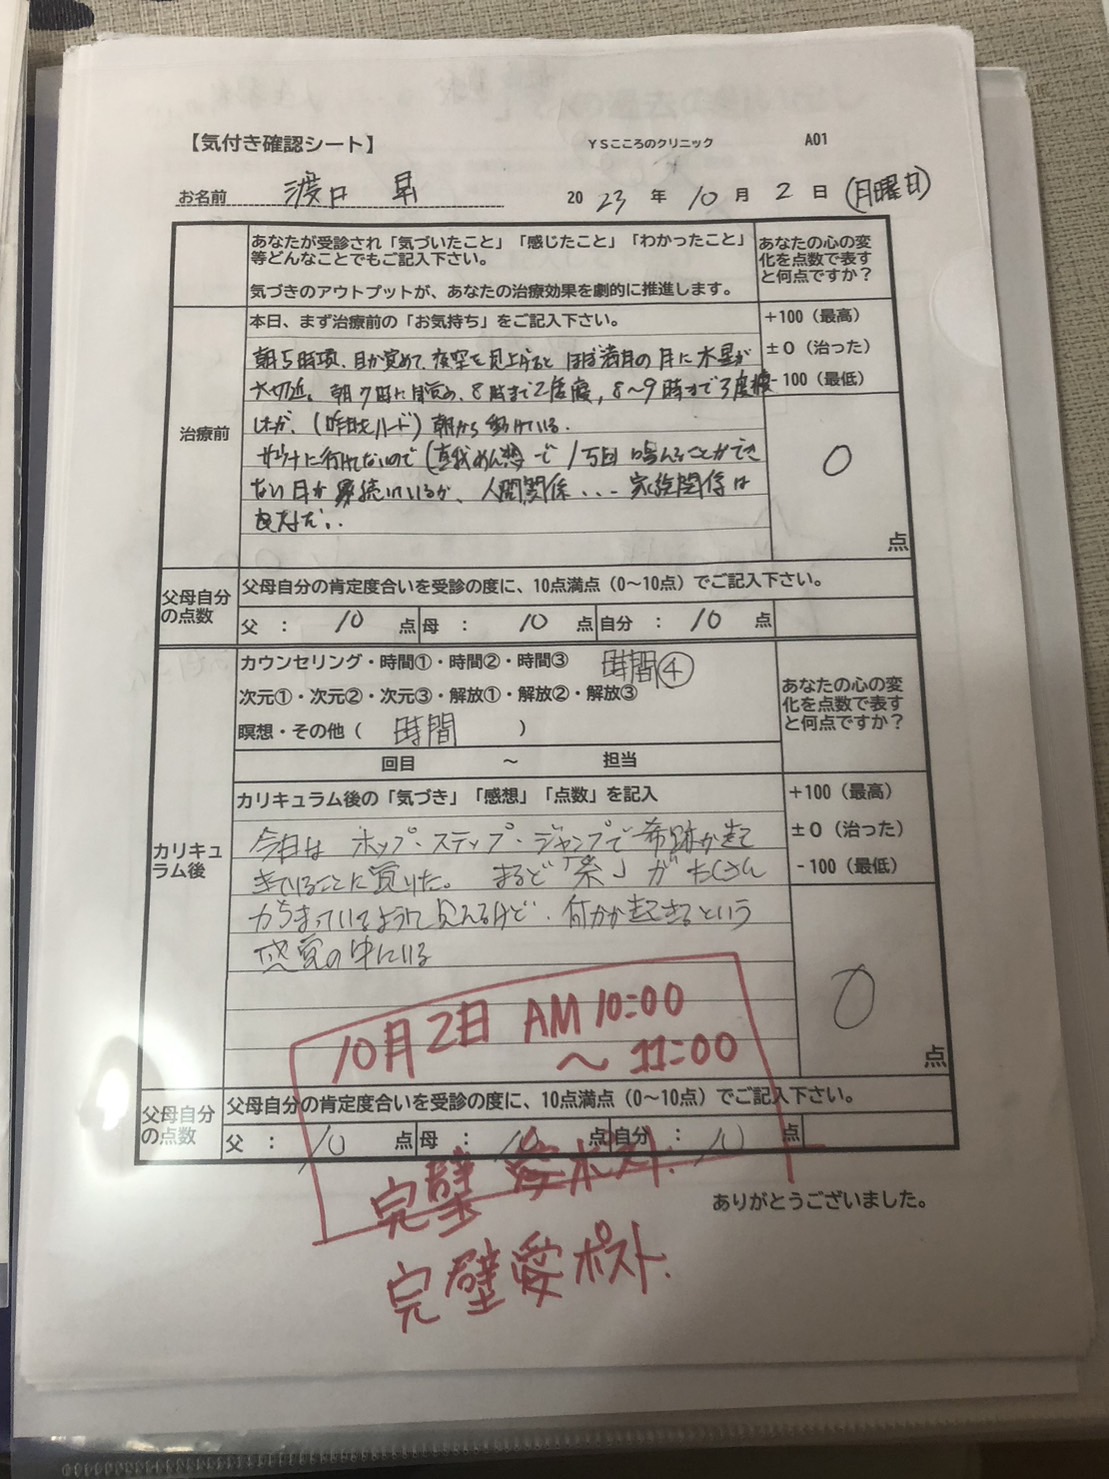 【気付き確認シート】 YSこころのクリニック A01
お名前 渡口 昇 2023年 10月 2日 (月曜日)
あなたが受診され「気づいたこと」「感じたこと」「わかったこと」
等どんなことでもご記入下さい。
気づきのアウトプットが、あなたの治療効果を劇的に推進します。
あなたの心の変
化を点数で表す
と何点ですか?
治療前
本日、まず治療前の「お気持ち」をご記入下さい。
朝5時頃、目が覚めて、夜空を見上げると ほぼ満月の月に木星が
大切近。朝7時に目覚め、8時まで2度寝, 8〜9時まで3度寝
したが、(昨日もハード) 朝から動けている.
サウナに行けてないので で 1万回 唱えることができ
ない日が 継続しているが、人間関係... 家族関係は
良好だ..
+100(最高)
±0(治った)
-100(最低)
0
点
父母自分
の点数
父母自分の肯定度合いを受診の度に、10点満点(0〜10点)でご記入下さい。
父 : 10 点 母 : 10 点 自分 : 10 点
カリキュ
ラム後
カウンセリング・時間①・時間②・時間③ 時間④
次元①・次元②・次元③・解放①・解放②・解放③
瞑想・その他( 時間 )
回目 〜 担当
あなたの心の変
化を点数で表す
と何点ですか?
カリキュラム後の「気づき」「感想」「点数」を記入
今日は ホップ・ステップ・ジャンプで 奇跡が起て
きていることに気付けた。まるで「糸」が たくさん
からまっているように見えるけど、何かが起きるという
感覚の中にいる
+100(最高)
±0(治った)
-100(最低)
0
点
10月2日 AM 10:00
〜 11:00
父母自分
の点数
父母自分の肯定度合いを受診の度に、10点満点(0〜10点)でご記入下さい。
父 : 10 点 母 : 10 点 自分 : 10 点
完璧愛ポスト.
ありがとうございました。
完璧愛ポスト.